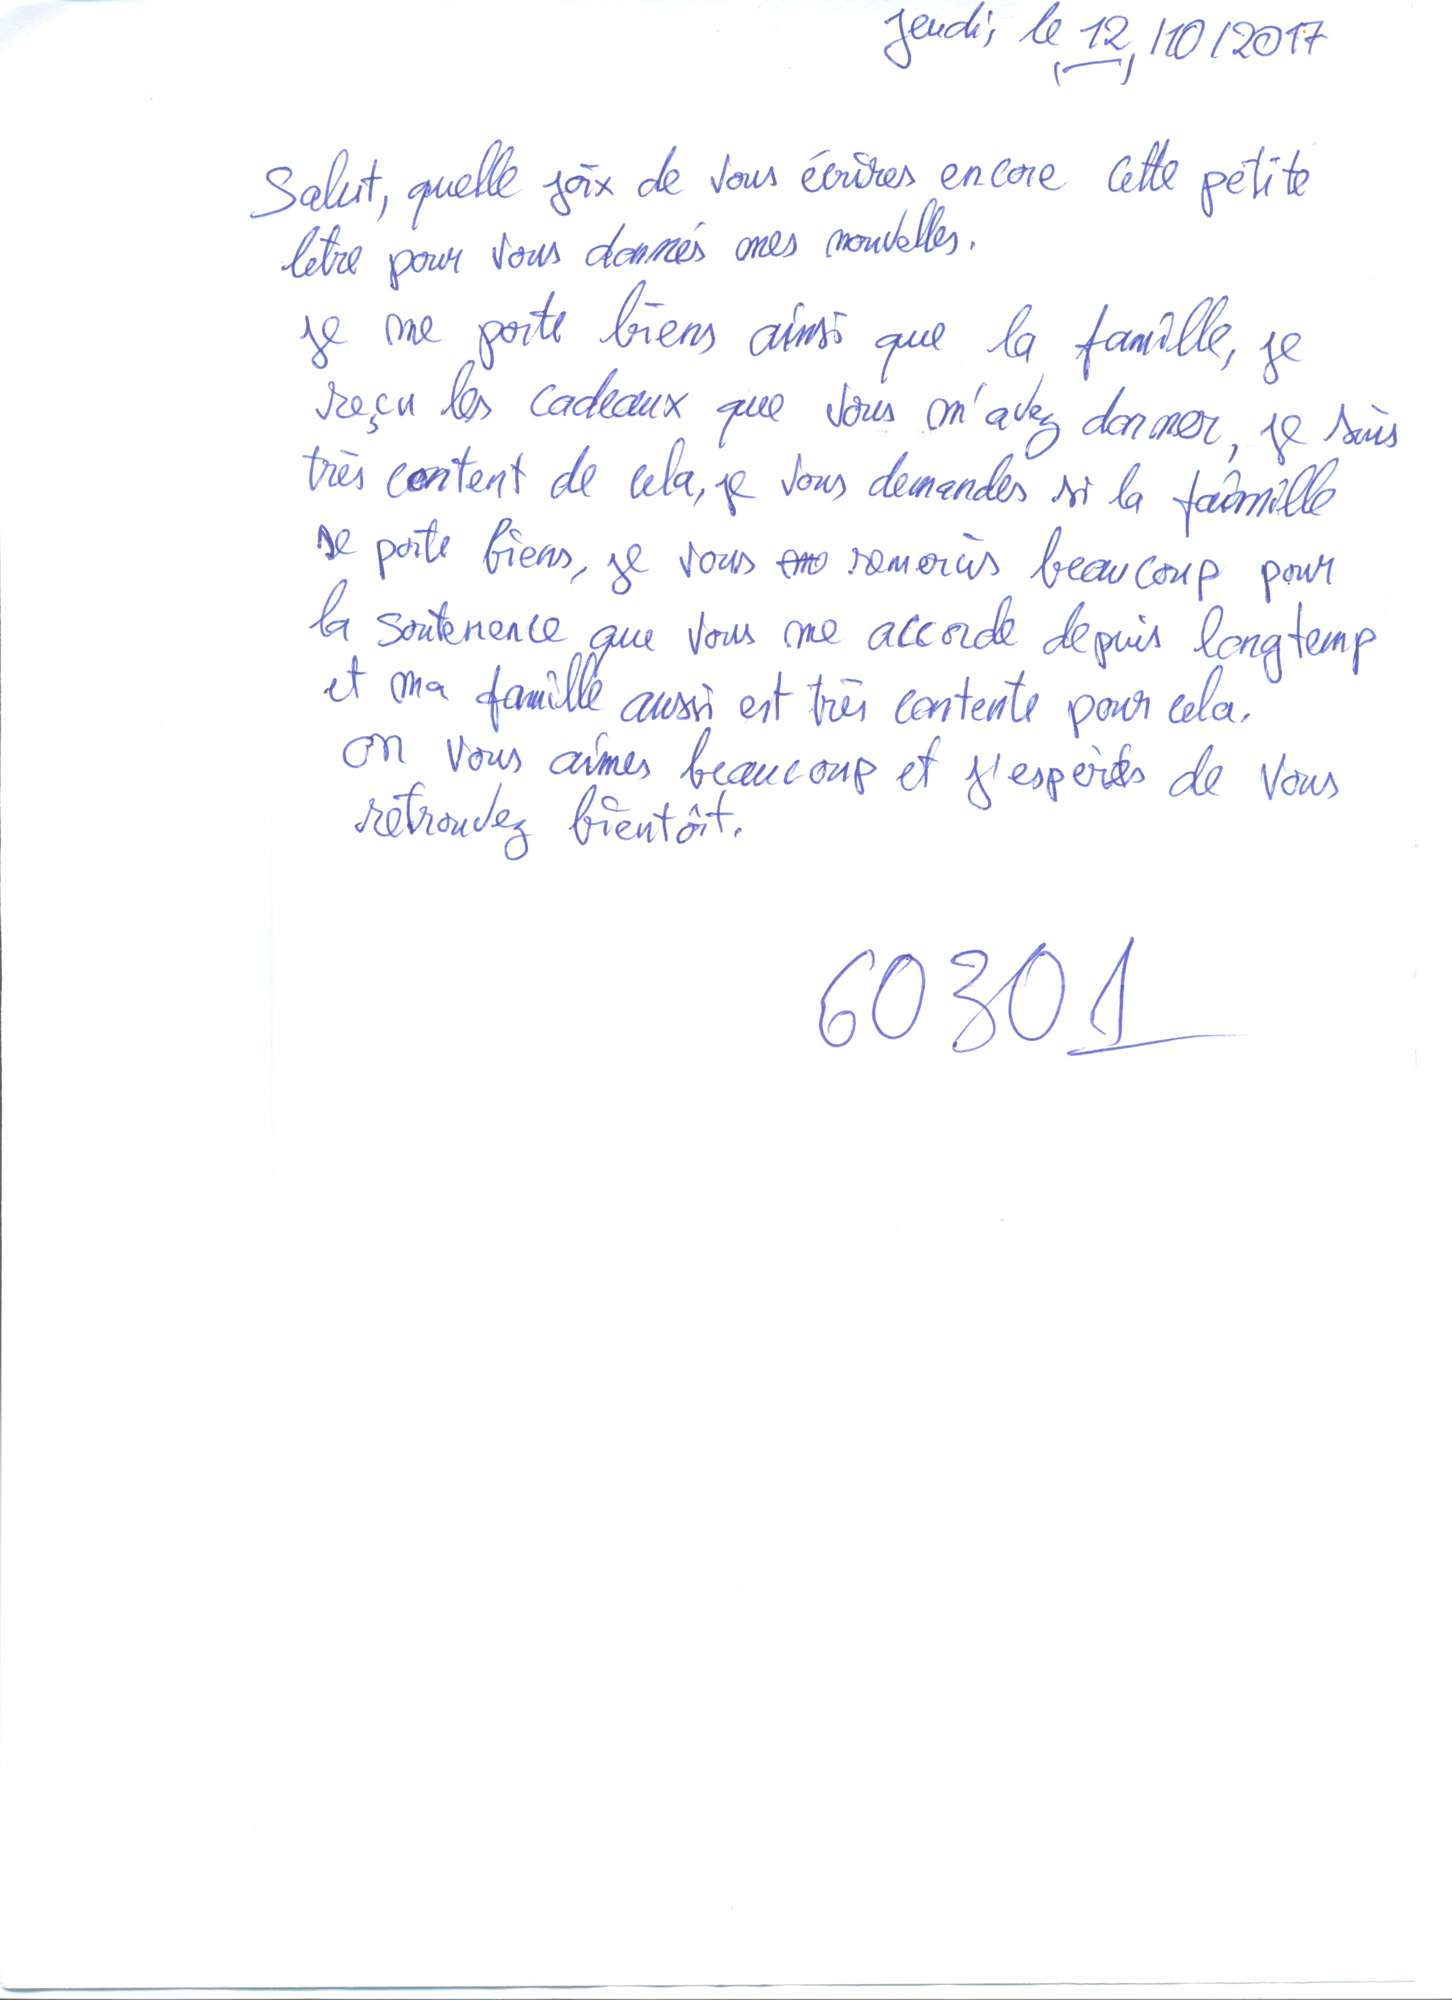 Jeudi, le 12/10/2017
Salut, quelle joix de vous écrires encore cette pétite
letre pour vous donnés mes nouvelles.
je me porte biens ainsi que la famille, je
reçu les cadeaux que vous m'avez donner, je suis
très content de cela, je vous demandes si la famille
se porte biens, je vous remercis beaucoup pour
la soutenence que vous me accorde depuis longtemp
et ma famille aussi est très contente pour cela.
on vous aimes beaucoup et j'espères de vous
rétrouvez bientôit.
60301